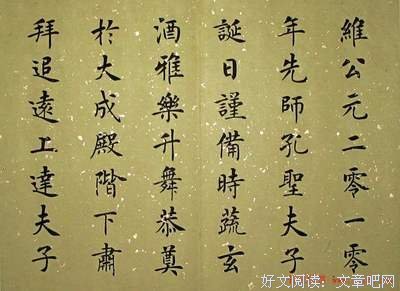 維公元二零一零
年先師孔聖夫子
誕日謹備時蔬玄
酒雅樂升舞恭奠
於大成殿階下肅
拜追遠上達夫子
好文阅读：文章吧网